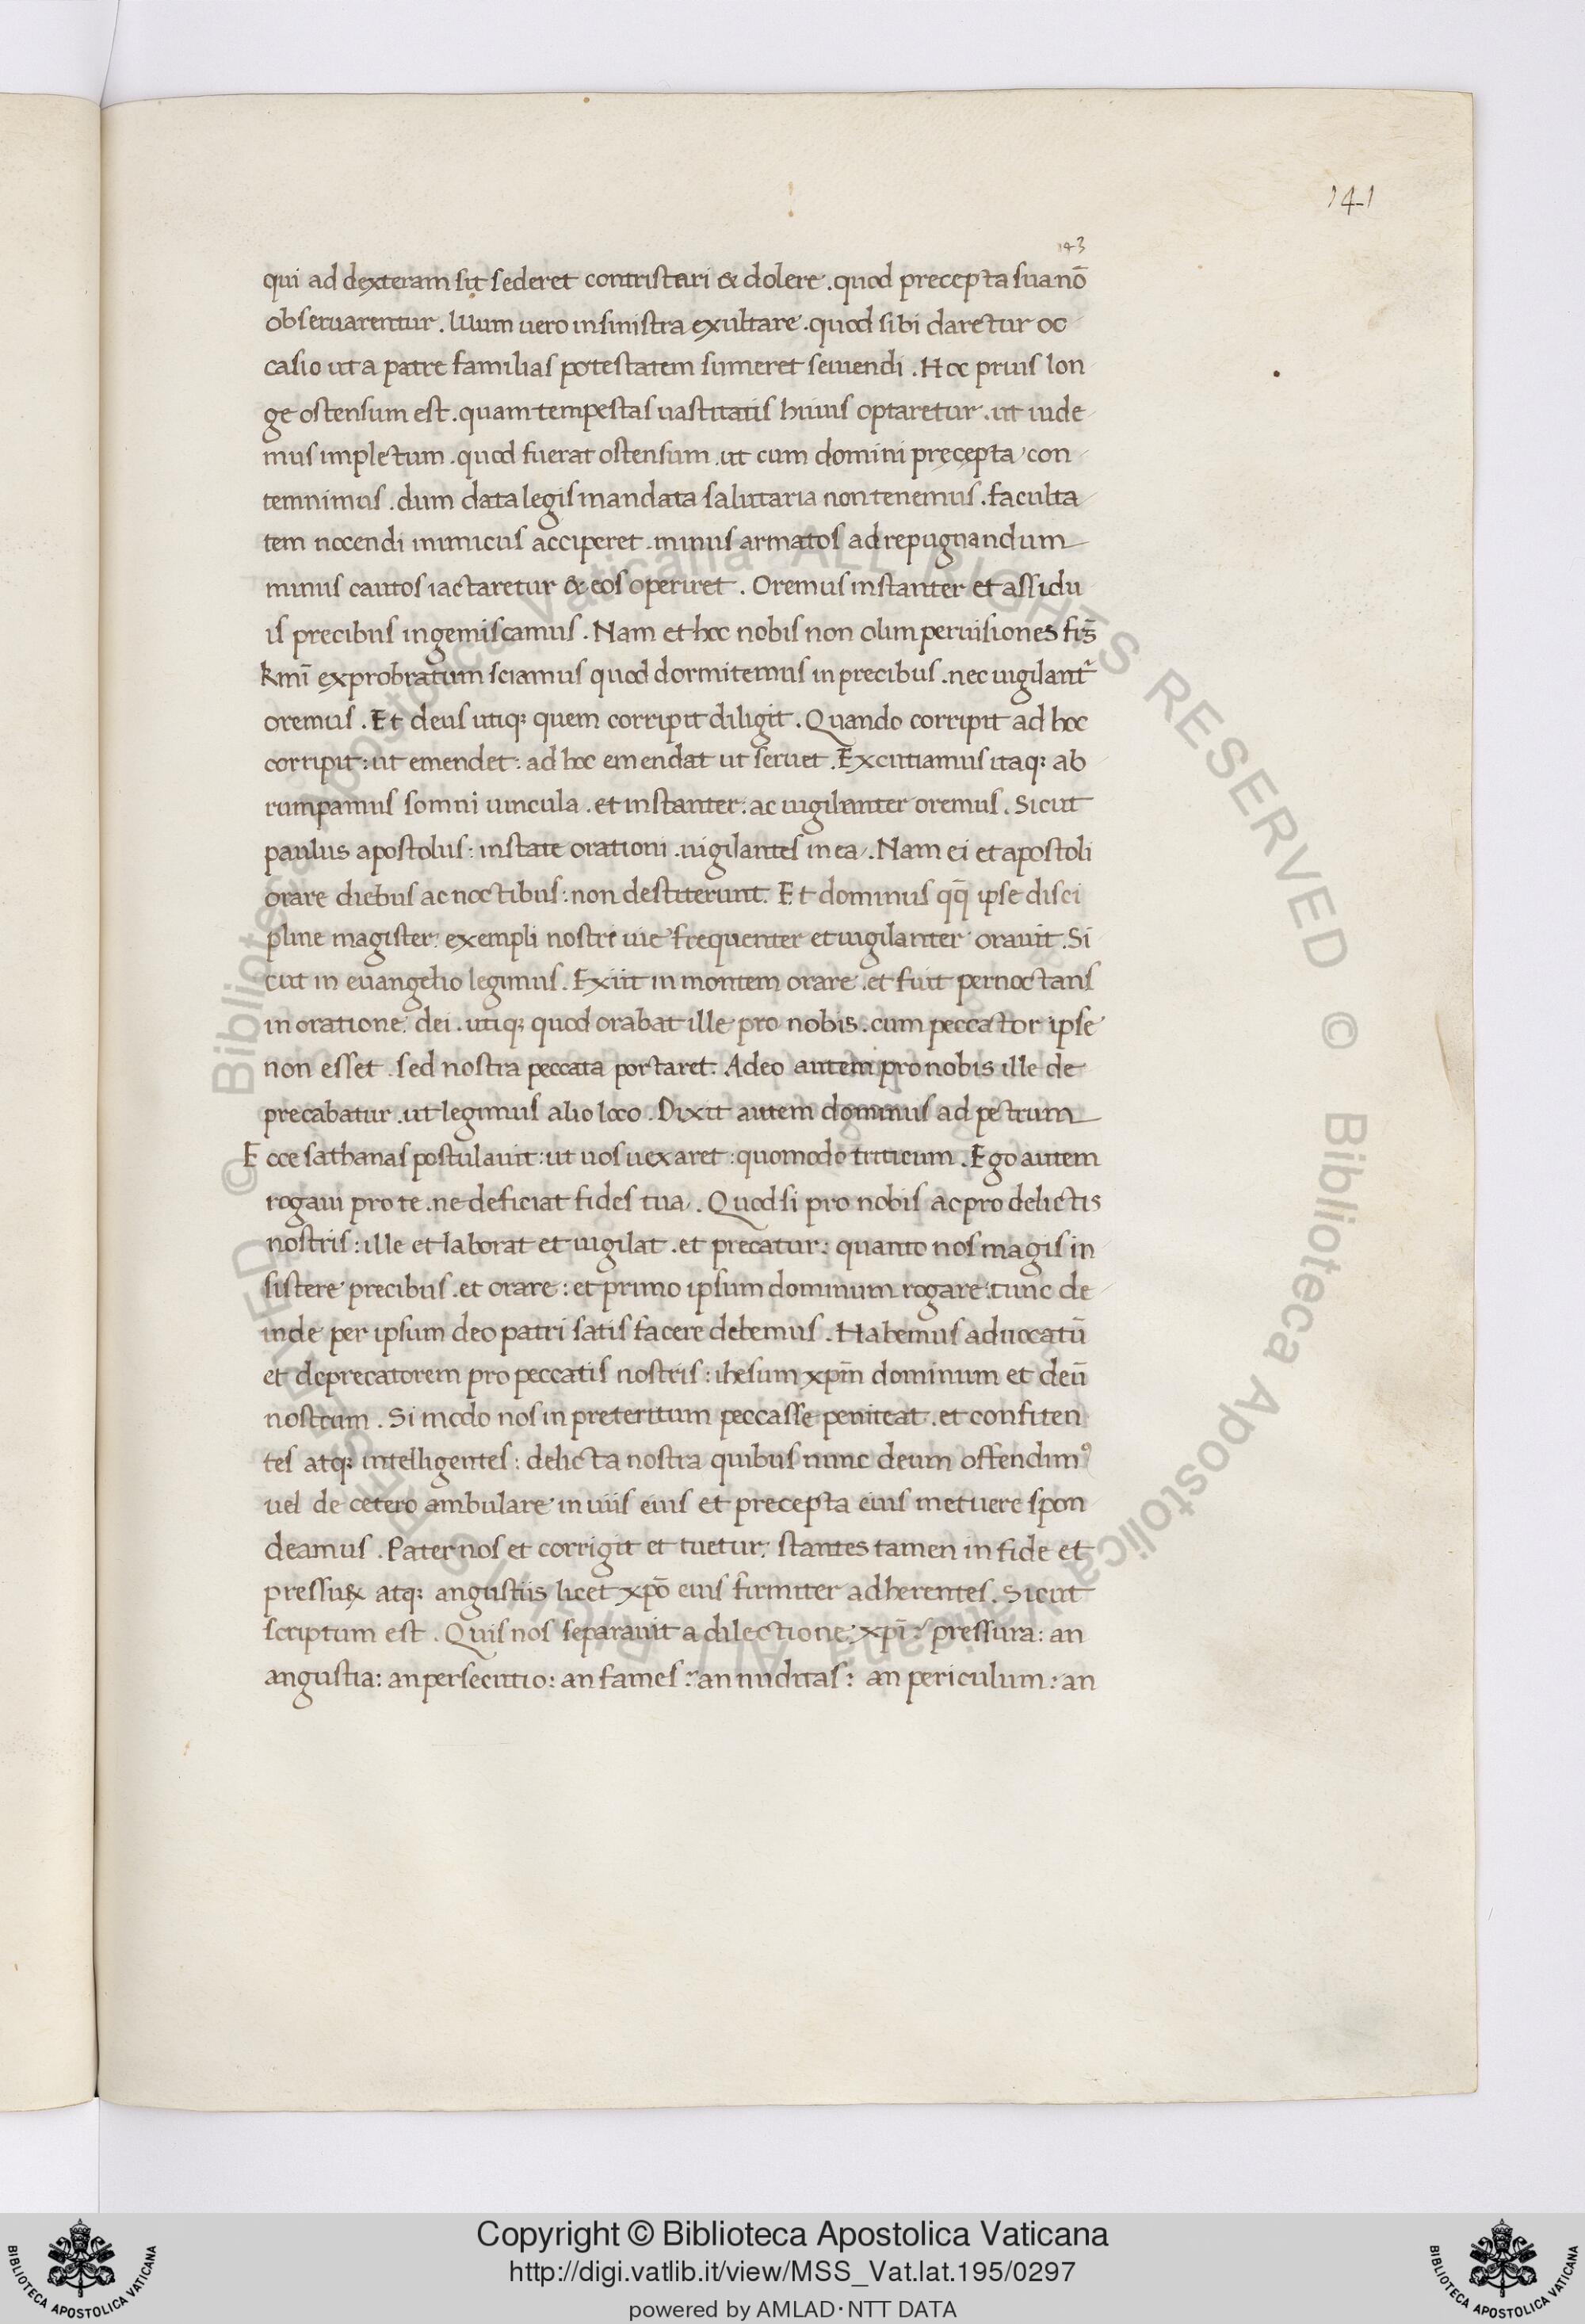 141
143
qui ad dexteram sit sederet contristari & dolere . quod precepta sua nō
obseruarentur . Illum uero in sinistra exultare . quod sibi daretur oc
casio ut a patre familias potestatem sumeret seuiendi . Hoc prius lon
ge ostensum est . quam tempestas uastitatis huius optaretur . ut uide
mus impletum . quod fuerat ostensum . ut cum domini pręcepta con
temnimus . dum data legis mandata salutaria non tenemus . faculta
tem nocendi inimicus acciperet . minus armatos ad repugnandum
minus cautos iactaretur & eos operiret . Oremus instanter et assidu
is precibus ingemiscamus . Nam et hoc nobis non olim per uisiones frs̄
kmī exprobratum sciamus quod dormitemus in precibus . nec uigilant̄
oremus . Et deus utiq; quem corripit diligit . Quando corripit ad hoc
corripit : ut emendet : ad hoc emendat ut seruet . Excutiamus itaq; ab
rumpamus somni uincula . et instanter : ac uigilanter oremus . Sicut
paulus apostolus : instate orationi . uigilantes in ea . Nam ei et apostoli
orare diebus ac noctibus : non destiterunt . Et dominus qq̄ ipse disci
pline magister : exempli nostre uie frequenter et uigilanter orauit . Si
cut in euangelio legimus . Exiit in montem orare . et fuit pernoctans
in oratione dei . utiq; quod orabat ille pro nobis . cum peccator ipse
non esset . sed nostra peccata portaret . Adeo autem pro nobis ille de
precabatur . ut legimus alio loco . Dixit autem dominus ad petrum
Ecce sathanas postulauit : ut uos uexaret : quomodo triticum . Ego autem
rogaui pro te . ne deficiat fides tua . Quod si pro nobis ac pro delictis
nostris : ille et laborat et uigilat . et precatur : quanto nos magis in
sistere precibus . et orare : et primo ipsum dominum rogare : tunc de
inde per ipsum deo patri satis facere debemus . Habemus aduocatū
et deprecatorem pro peccatis nostris : ihesum xpm̄ dominum et deū
nostrum . Si modo nos in preteritum peccasse peniteat . et confiten
tes atq; intelligentes : delicta nostra quibus nunc deum offendimꝰ
uel de cetero ambulare in uiis eius et precepta eius metuere spon
deamus . Pater nos et corrigit et tuetur : stantes tamen in fide et
pressuꝝ atq; angustiis licet xpō eius firmiter adherentes . Sicut
scriptum est . Quis nos separauit a dilectione xpī : pressura : an
angustia : an persecutio : an fames : an nuditas : an periculum : an
© Biblioteca Apostolica Vaticana ALL RIGHTS RESERVED
© Biblioteca Apostolica Vaticana ALL RIGHTS RESERVED
Copyright © Biblioteca Apostolica Vaticana
http://digi.vatlib.it/view/MSS_Vat.lat.195/0297
powered by AMLAD·NTT DATA
BIBLIOTECA APOSTOLICA VATICANA
BIBLIOTECA APOSTOLICA VATICANA